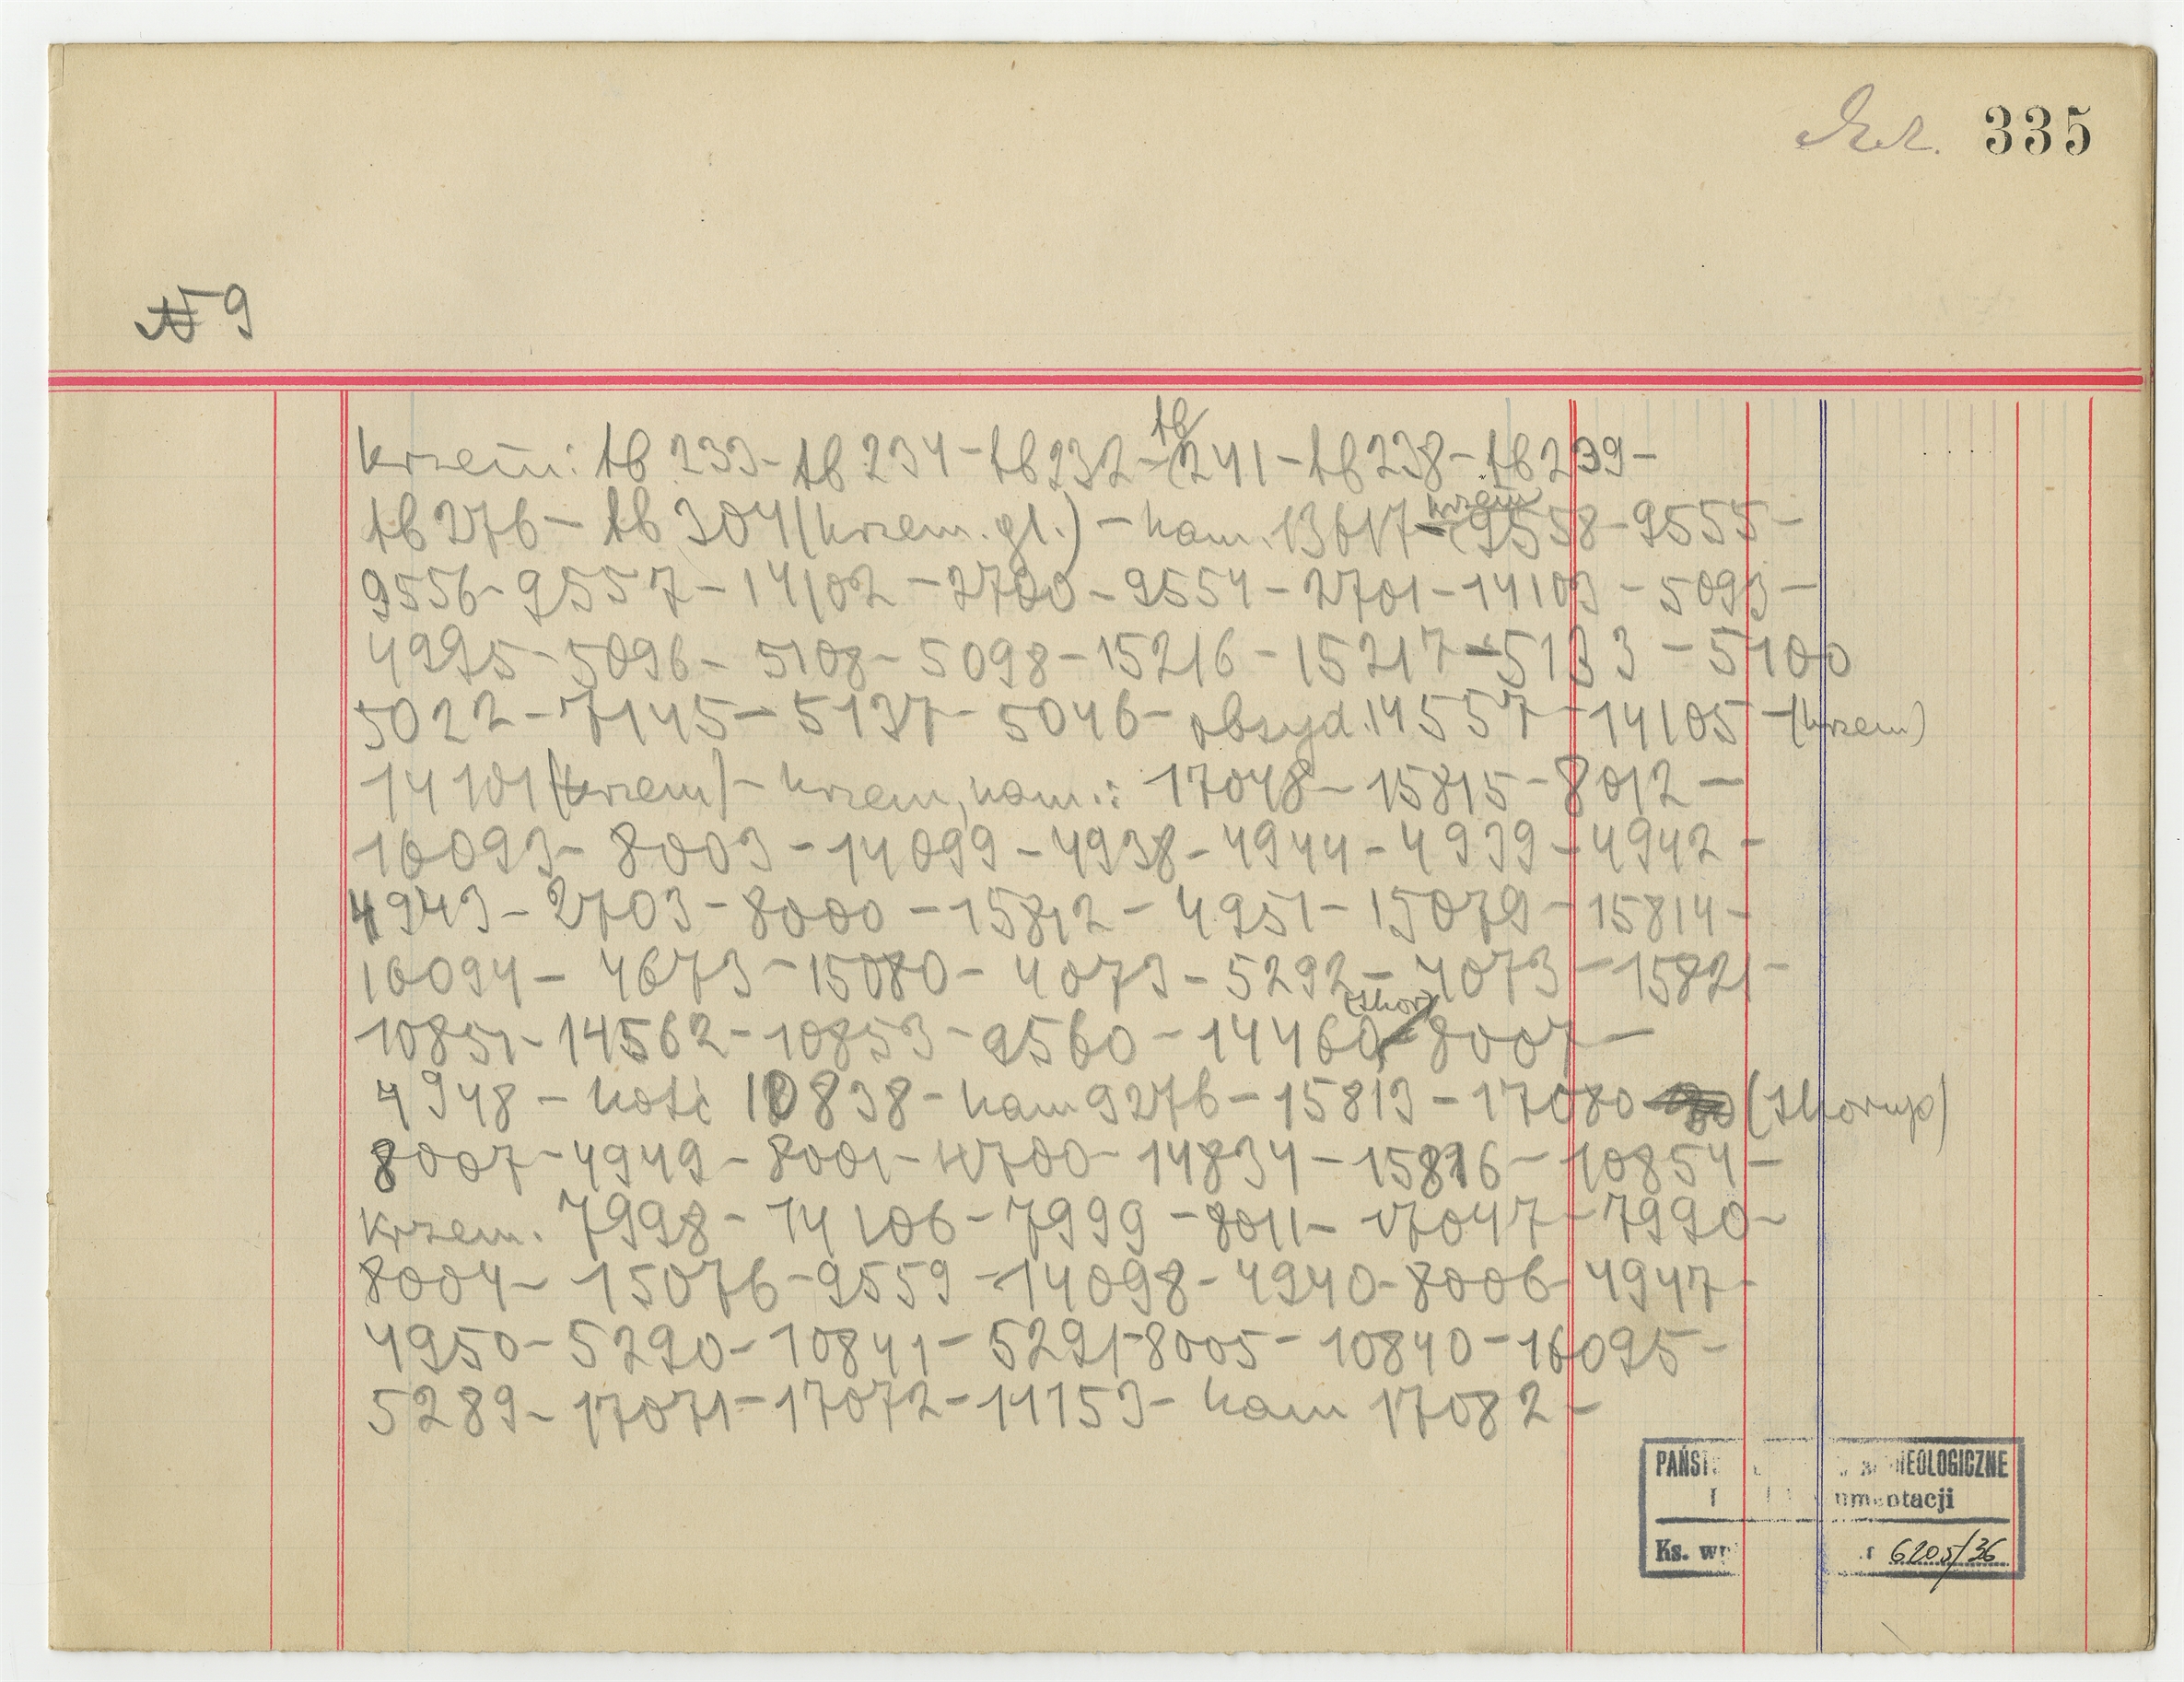 335
№ 9
krzem: tb 233 - tb 234 - tb 232 - tb 241 - tb 238 - tb 239 -
tb 276 - tb 304 (krzem. gl.) - kam. 13617 - krzem (9558 - 9555 -
9556 - 9557 - 14102 - 2700 - 9554 - 2701 - 14103 - 5093 -
4995 - 5096 - 5108 - 5098 - 15216 - 15217 - 5133 - 5100
5022 - 7145 - 5137 - 5046 - obsyd. 14557 - 14105 - (krzem)
14101 (krzem) - krzem, kam.: 17048 - 15815 - 8012 -
16093 - 8003 - 14099 - 4938 - 4944 - 4939 - 4942 -
4943 - 2703 - 8000 - 15812 - 4951 - 15079 - 15814 -
16094 - 4673 - 15080 - 4073 - 5292 - 4073 - 15821 -
10851 - 14562 - 10853 - 9560 - 14460 (skor) - 8007 -
4948 - kość 10838 - kam 9276 - 15813 - 17080 (skorup)
8007 - 4949 - 8001 - 4700 - 14834 - 15816 - 10854 -
krzem. 7998 - 14106 - 7999 - 8011 - 17047 - 7990 -
8004 - 15076 - 9559 - 14098 - 4940 - 8006 - 4947 -
4950 - 5290 - 10841 - 5291 - 8005 - 10840 - 16095 -
5289 - 17071 - 17072 - 14153 - kam 17082 -
6205/36